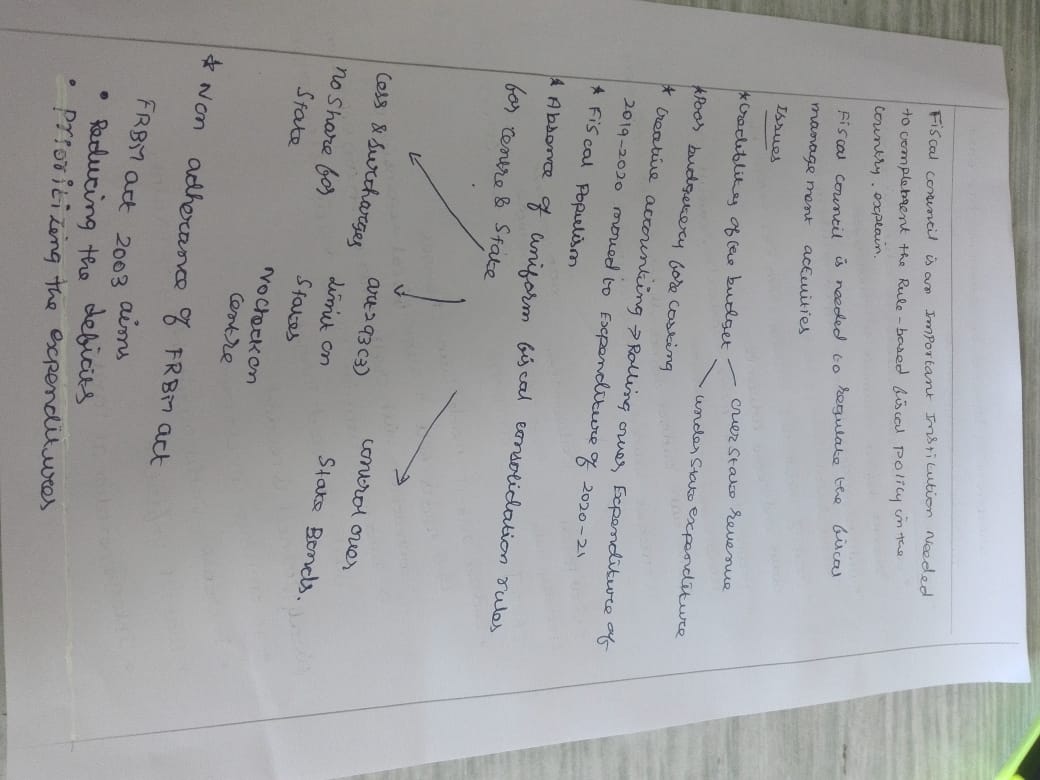 Fiscal council is an Important Institution Needed
to complement the Rule-based fiscal Policy in the
country. explain.
Fiscal council is needed to regulate the fiscal
management activities
Issues
* Credibility of the budget - overstate revenue
understate expenditure
* Poor budgetery forecasting
* Creative accounting → Rolling over Expenditure of
2019-2020 moved to Expenditure of 2020-21
* Fiscal Populism
* Absence of uniform fiscal consolidation rules
for centre & State
Cess & Surcharges
no share for
State
art 293(3)
limit on
States
No check on
Centre
control over
State Bonds.
* Non adherance of FRBM act
FRBM act 2003 aims
• Reducing the deficits
• Prioritizing the expenditures